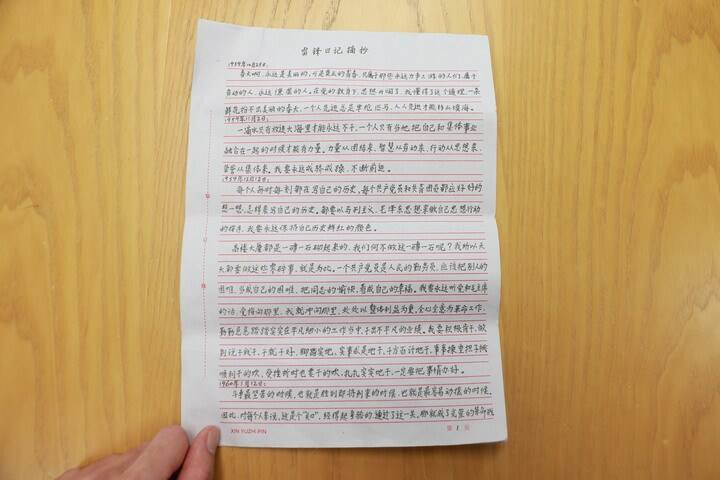 雷锋日记摘抄
1959年10月25日:
春天啊,永远是美丽的,可是真正的青春,只属于那些永远力争上游的人们,属于
劳动的人,永远谦虚的人。在党的教育下,思想开朗了,我懂得了这个道理,一朵
鲜花扮不出美丽的春天,一个人先进总是单枪匹马,人人先进才能移山填海。
1959年11月2日:
一滴水只有放进大海里才能永远不干,一个人只有当他把自己和集体事业
融合在一起的时候才能有力量。力量从团结来,智慧从劳动来,行动从思想来,
荣誉从集体来。我要永远戒骄戒躁,不断前进。
1959年12月12日:
每个人每时每刻都在写自己的历史,每个共产党员和共青团员都应好好的
想一想,怎样来写自己的历史。都要以马列主义、毛泽东思想来做自己思想行动
的指南,我要永远保持自己历史鲜红的颜色。
高楼大厦都是一砖一石砌起来的,我们何不做这一砖一石呢?我所以天
天都要做这些零碎事,就是为此。一个共产党员是人民的勤务员,应该把别人的
困难,当成自己的困难,把同志的愉快,看成自己的幸福。我要永远听党和毛主席
的话,党指向那里,我就冲向那里,处处以整体利益为重,全心全意为革命工作,
勤勤恳恳踏踏实实在平凡细小的工作当中,干出不平凡的业绩。我要积极肯干,做
到说干就干,干就干好,脚踏实地,实事求是地干,千方百计地干,事事
顺利干的欢,受挫折时也要干的欢,扎扎实实地干,一定要把事情办好。
1960年1月12日:
斗争最艰苦的时候,也就是胜利即将到来的时候,也就是最容易动摇的时候。
因此,对每个人来说,这是个"关口"。经得起考验的,通过了这一关,那就成了光荣的革命战
XIN YUZHI PIN
第 1 页